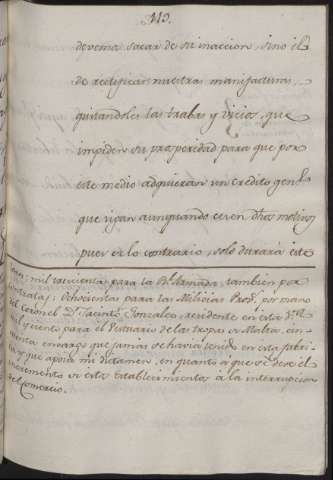 113.
devemâ sacar de su inaccion, sino él
de rectificar nuestras manifacturas,
quitandoles las trabas y vicios, que
impiden su prosperidad para que por
este medio adquieran un crédito genl.
que vivan aunquando cesen dhos. motivos
pues es lo contrario, solo durará este
mil trecientas para la Rl. Armada, tambien por
contrata; Ochocientas para las Milicias Prov.s por mano
del Coronel Dn. Jacinto Gonzalez, residente en esta
el para el Vestuario de las tropas de Malta, cin-
cuenta encargo que jamás se havia tenido en esta fabri-
ca y que apoia mi dictamen, en quanto á que se deve el
incremento de este establecimiento á la interrupcion
del Comercio.